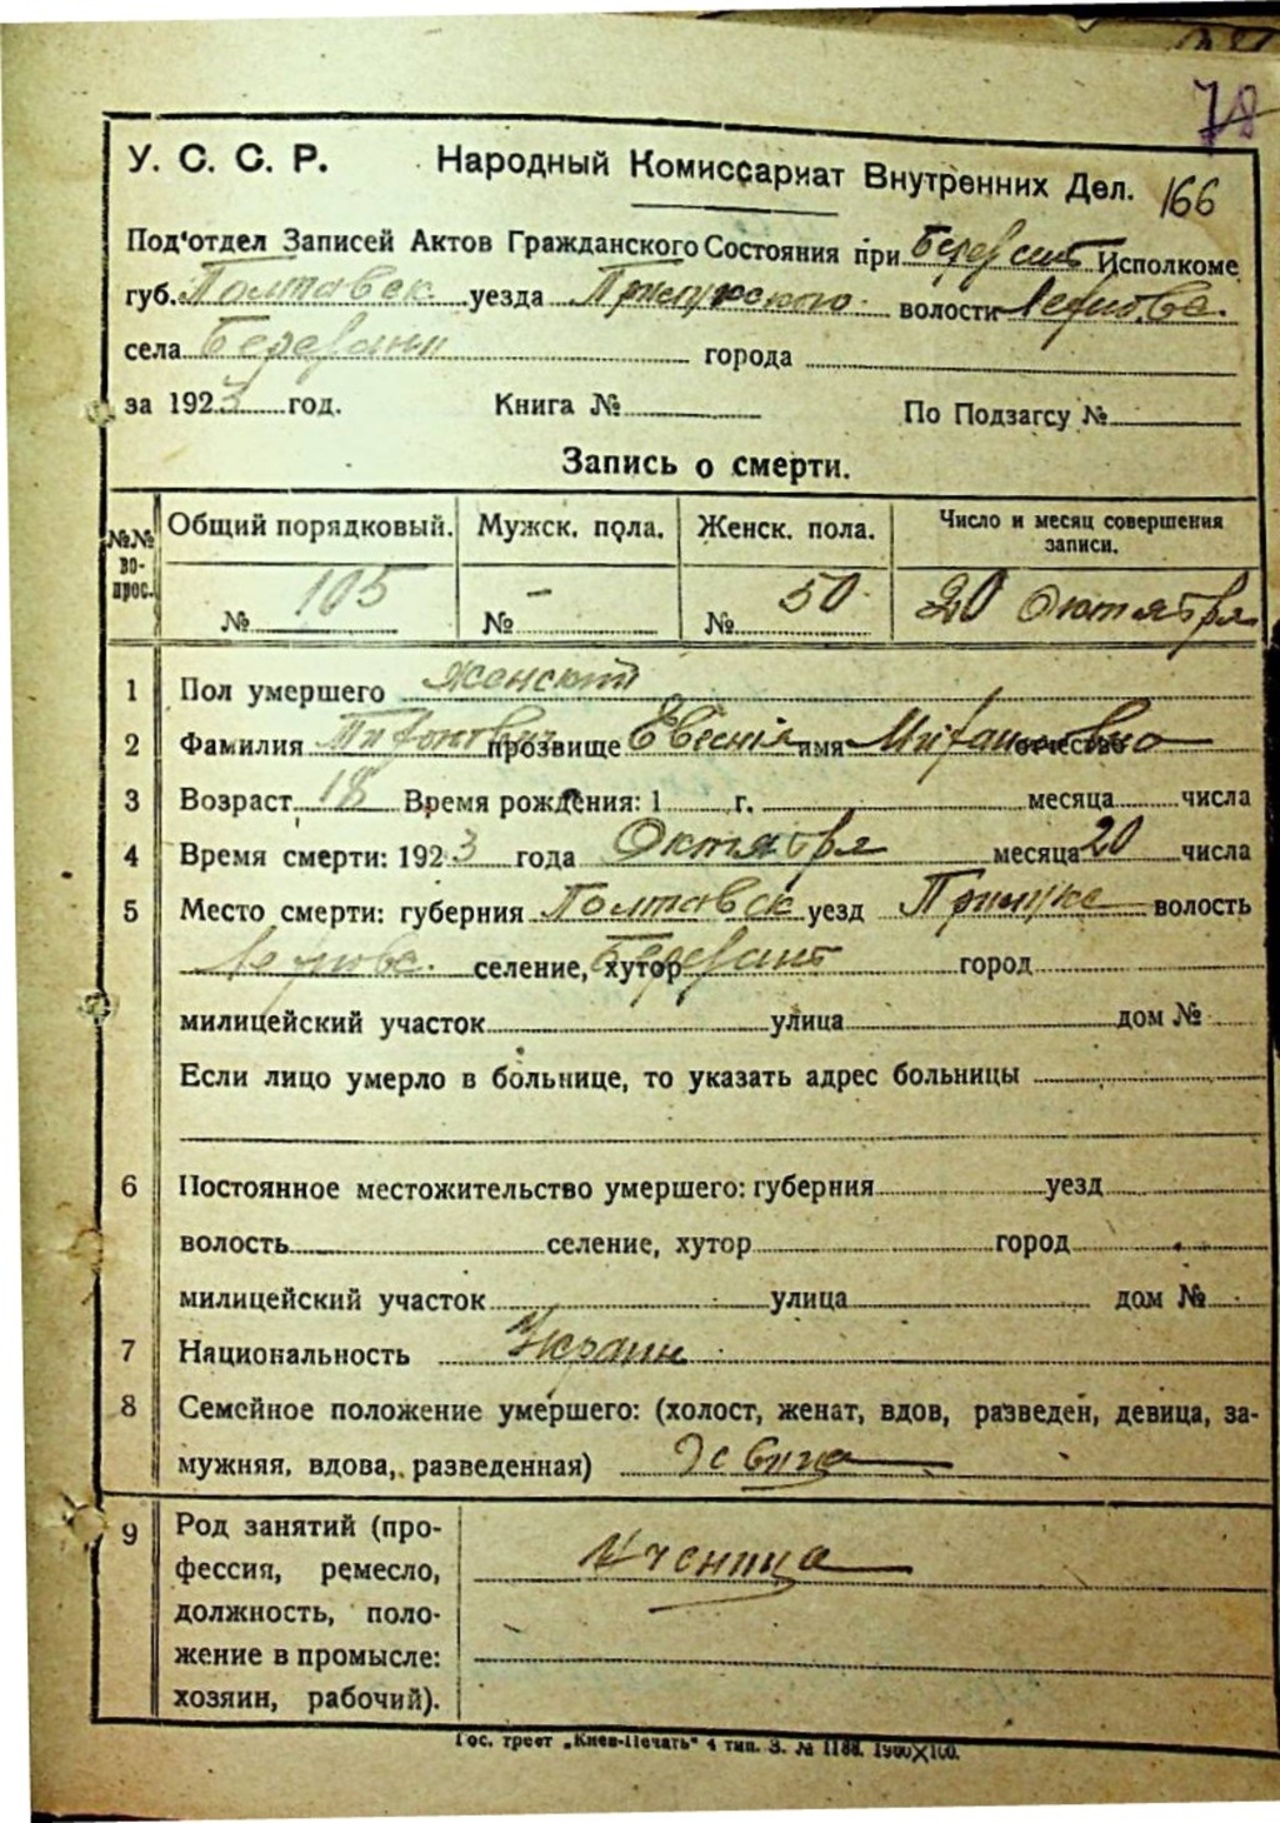 78
У. С. С. Р. Народный Комиссариат Внутренних Дел. 166
Под'отдел Записей Актов Гражданского Состояния при Исполкоме
губ. Полтавск уезда Прилукского волости
села Березани города
за 1923 год. Книга № По Подзагсу №
Запись о смерти.
№№ вопрос. Общий порядковый. Мужск. пола. Женск. пола. Число и месяц совершения записи.
№ 105 № - № 50 20 Октября
1 Пол умершего женский
2 Фамилия прозвище Евгения имя отчество
3 Возраст 18 Время рождения: 1 г. месяца числа
4 Время смерти: 1923 года Октября месяца 20 числа
5 Место смерти: губерния Полтавск уезд Прилукс волость
селение, хутор город
милицейский участок улица дом №
Если лицо умерло в больнице, то указать адрес больницы
6 Постоянное местожительство умершего: губерния уезд
волость селение, хутор город
милицейский участок улица дом №
7 Национальность Украин
8 Семейное положение умершего: (холост, женат, вдов, разведен, девица, за-
мужняя, вдова, разведенная) Девица
9 Род занятий (про-
фессия, ремесло, Ученица
должность, поло-
жение в промысле:
хозяин, рабочий).
Гос. трест „Киев-Печать" 4 тип. З. № 1188. 1900×100.